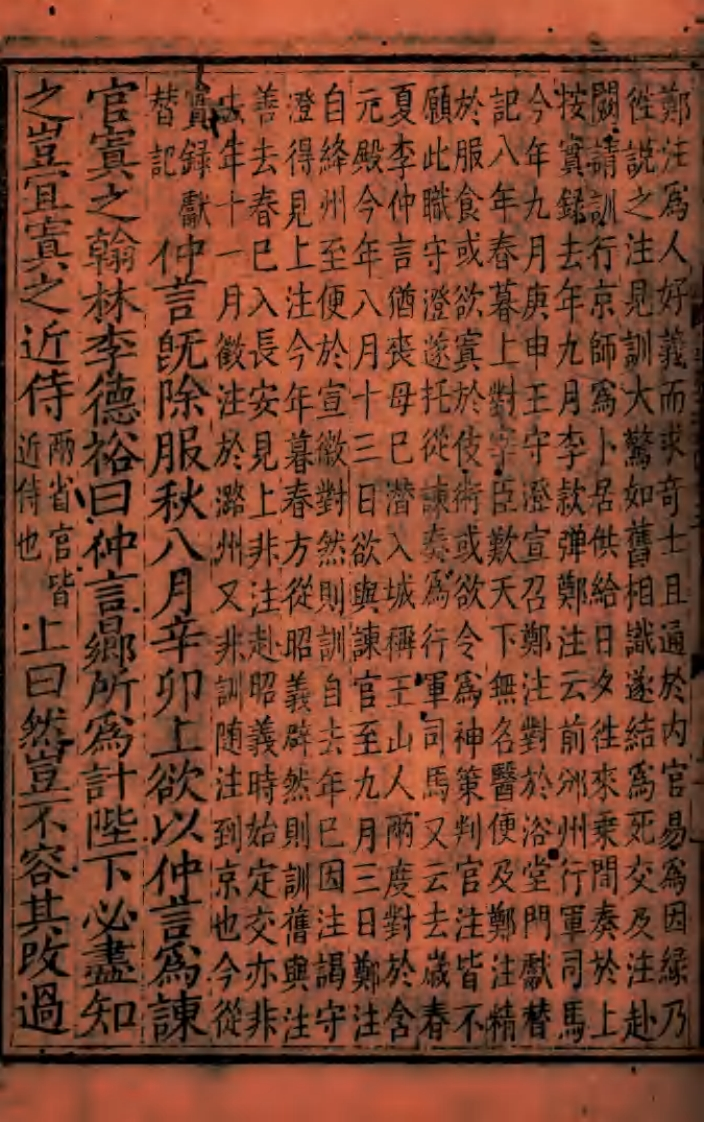 鄭注爲人好義而求奇士且通於内官易爲因緣乃
徃說之注見訓大驚如舊相識遂結爲死交及注赴
闕請訓行京師爲卜居供給日夕徃來乘間奏於上
按實錄去年九月李款彈鄭注云前邠州行軍司馬
今年九月庚申王守澄宣召鄭注對於浴堂門獻替
記八年春暮上對宰臣歎天下無名醫便及鄭注精
於服食或欲寘於伎術或欲令爲神策判官注皆不
願此職守澄遂托從諫奏爲行軍司馬又云去歲春
夏李仲言猶喪母已潜入城稱王山人兩度對於含
元殿今年八月十三日欲與諫官至九月三日鄭注
自絳州至便於宣徽對然則訓自去年已因注謁守
澄得見上注今年暮春方從昭義辟然則訓舊與注
善去春已入長安見上非注赴昭義時始定交亦非
去年十一月徵注於潞州又非訓随注到京也今從
實録獻
替記
仲言旣除服秋八月辛卯上欲以仲言爲諫
官寘之翰林李德裕曰仲言曏所爲計陛下必盡知
之豈宜寘之近侍
兩省官皆
近侍也
上曰然豈不容其改過